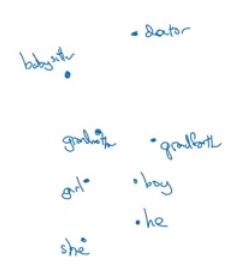 doctor
babysitter
grandmother
grandfath
girl
boy
he
she